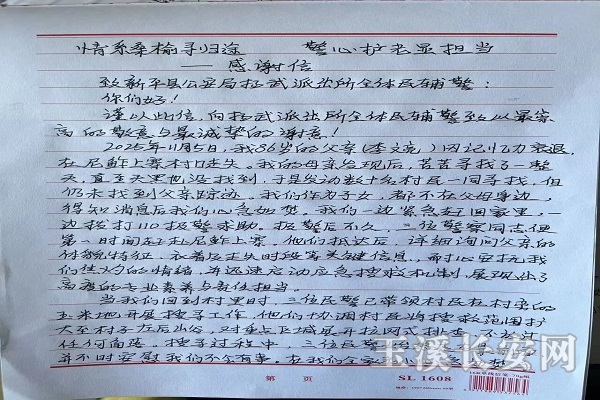 情系桑榆寻归途 警心护老显担当
——感谢信
致新平县公安局扬武派出所全体民辅警：
你们好！
谨以此信，向扬武派出所全体民辅警致以最崇
高的敬意与最诚挚的谢意！
2025年11月5日，我86岁的父亲（李文亮）因记忆力衰退，
在尼鲊上寨村口走失。我的母亲发现后，苦苦寻找了一整
天，直至天黑也没找到，于是发动数十名村民一同寻找，但
仍未找到父亲踪迹。我们作为子女，都不在父母身边，
得知消息后我们心急如焚。我们一边紧急赶回家里，一
边拨打110报警求助。报警后不久，三位警察同志便
第一时间赶到尼鲊上寨。他们抵达后，详细询问父亲的
体貌特征、衣着及走失时段等关键信息，耐心安抚我
们焦灼的情绪，并迅速启动应急搜救机制，展现出了
高度的专业素养与责任担当。
当我们回到村里时，三位民警已带领村民在村旁的
玉米地开展搜寻工作，他们协调村民将搜救范围扩
大至村子左右山谷，对重点区域展开拉网式排查，不放过
任何角落。搜寻过程中，三位民警
并不时安慰我们不会有事。在我们全家
第 页
SL 1608
玉溪长安网